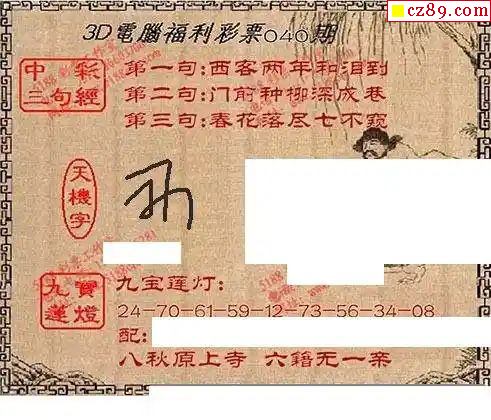 cz89.com
3D電腦福利彩票040期
中彩三句經
第一句:西客两年和泪到
第二句:门前种柳深成巷
第三句:春花落尽七不窥
天機字
九寳蓮燈
九宝莲灯:
24-70-61-59-12-73-56-34-08
配:
八秋原上寺 六籍无一亲